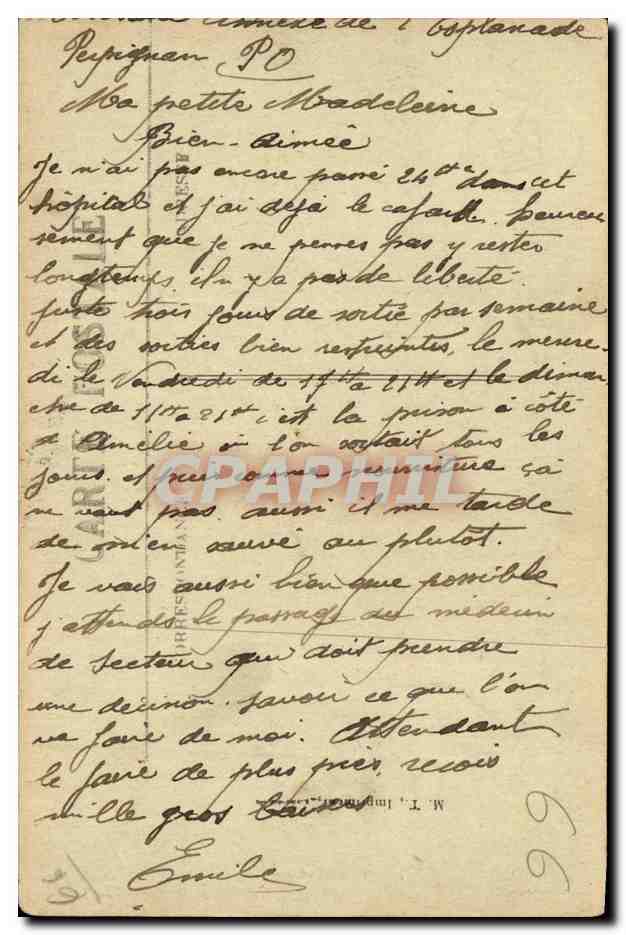 annexe de l'Esplanade
Perpignan PO
Ma petite Madeleine
Bien-aimée
Je n'ai pas encore passé 24h dans cet
hôpital et j'ai déjà le cafard. heureu
sement que je ne penses pas y rester
longtemps, il n'y a pas de liberté.
juste trois jours de sortie par semaine
et des sorties bien restreintes, le mercre-
di le Vendredi de 17H à 21H et le diman
che de 11H à 21H c'est la prison à côté
d'Amélie où l'on sortait tous les
jours. et puis comme nourriture çà
ne vaut pas. aussi il me tarde
de m'en sauvé au plutôt.
Je vais aussi bien que possible
j'attends le passage du médecin
de secteur qui doit prendre
une décision. savoir ce que l'on
va faire de moi. Attendant
le faire de plus près, reçois
mille gros baisers
Emile
CARTE POSTALE
CORRESPONDANCE
M. T., Imprimeur,
CPAPHIL
66